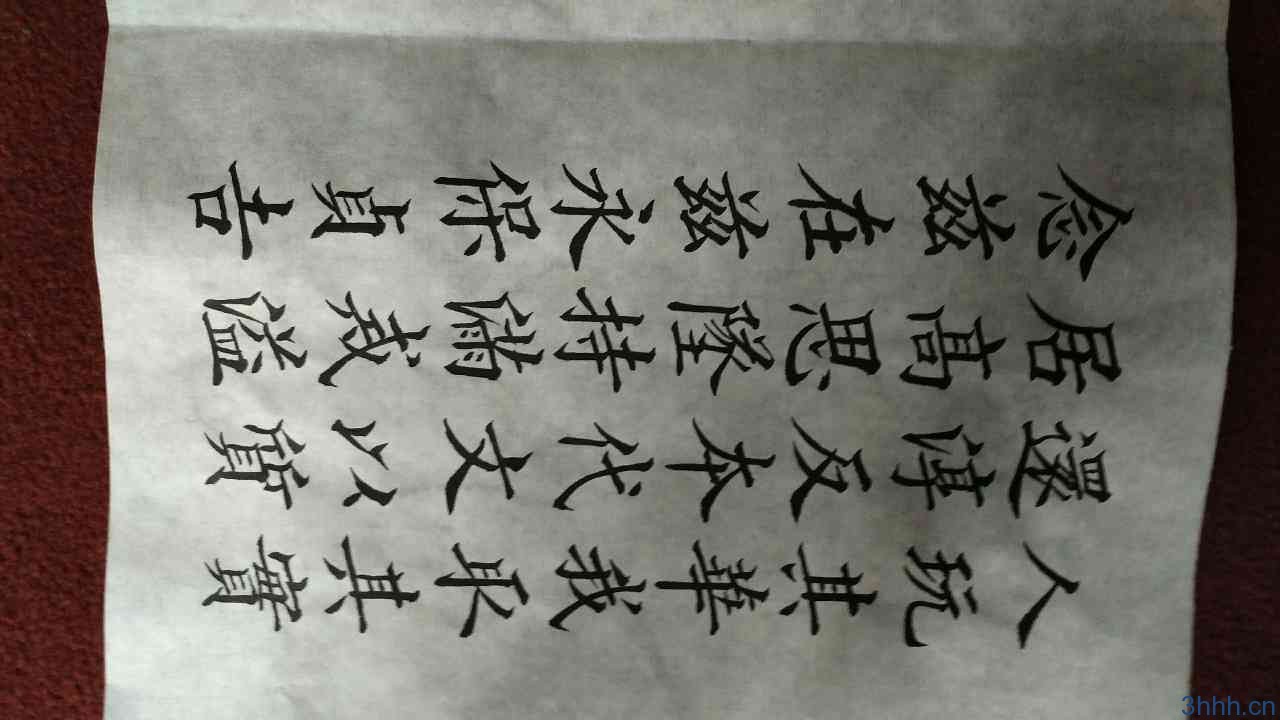 人玩其華我取其實
還淳反本代文以質
居高思墜持滿戒溢
念茲在茲永保貞吉
3hhh.cn